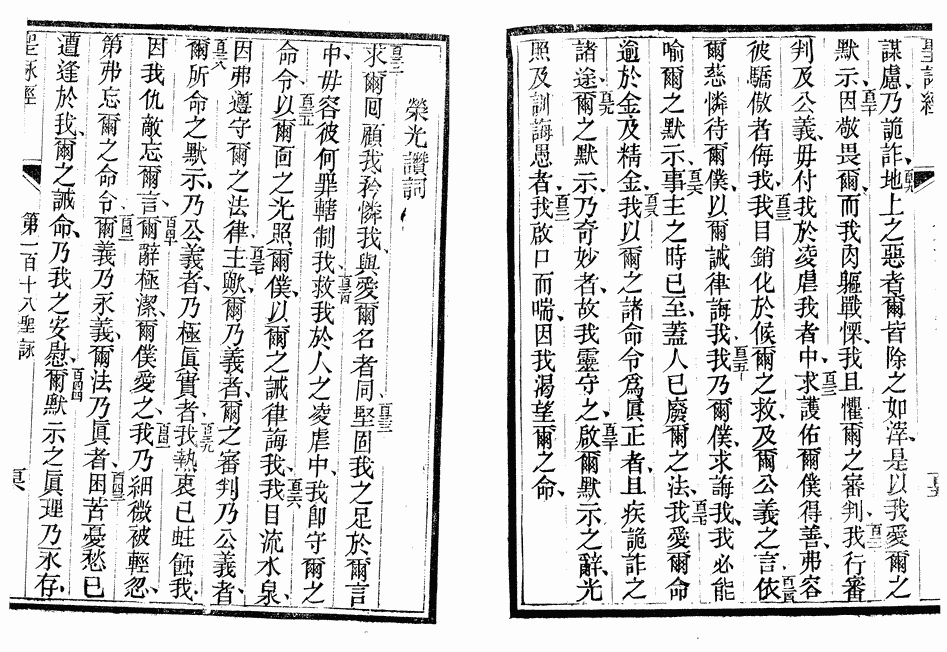 聖詠經
謀慮、乃詭詐、地上之惡者、爾皆除之如滓、是以我愛爾之
默示、因敬畏爾、而我肉軀戰慄、我且懼爾之審判、我行審
判及公義、毋付我於凌虐我者中、求護佑爾僕得善、弗容
彼驕傲者侮我、我目銷化於候爾之救、及爾公義之言、依
爾慈憐待爾僕、以爾誡律誨我、我乃爾僕、求誨我、我必能
喻爾之默示、事主之時已至、蓋人已廢爾之法、我愛爾命
逾於金及精金、我以爾之諸命令爲眞正者、且疾詭詐之
諸途、爾之默示、乃奇妙者、故我靈守之、啟爾默示之辭、光
照及訓誨愚者、我啟口而喘、因我渴望爾之命、
榮光讚詞
求爾回顧我、矜憐我、與愛爾名者同、堅固我之足於爾言
中、毋容彼何罪轄制我、救我於人之凌虐中、我卽守爾之
命令、以爾面之光照爾僕、以爾之誡律誨我、我目流水泉、
因弗遵守爾之法律、主歟、爾乃義者、爾之審判乃公義者、
爾所命之默示、乃公義者、乃極眞實者、我熱衷已蛀蝕我、
因我仇敵忘爾言、爾辭極潔、爾僕愛之、我乃細微被輕忽、
第弗忘爾之命令、爾義乃永義、爾法乃眞者、困苦憂愁已
遭逢於我、爾之誡命、乃我之安慰、爾默示之眞理乃永存、
聖詠經
第一百十八聖詠